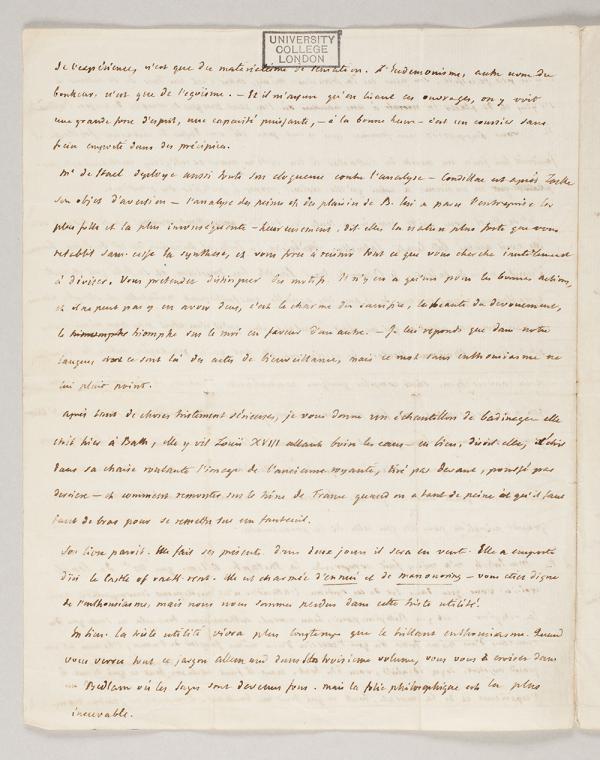 UNIVERSITY
COLLEGE
LONDON
de l'expérience, n'est que du matérialisme de sensation. L'Eudemonisme, autre nom du
bonheur, n'est que de l'egoïsme. – Et il n'argue qu'en lisant ces ouvrages, on y voit
une grande force d'esprit, une capacité puissante, – à la bonne heure – c'est un coursier sans
frein emporté dans des précipices.
Me de Stael deploye aussi toute son eloquence contre l'analyse – Condillac est après Locke
son objet d'aversion – l'analyse des peines et des plaisirs de B. lui a paru l'entreprise la
plus folle et la plus inconséquente – heureusement, dit elle, la nature plus forte que vous
retablit sans cesse la synthese, et vous force à réunir tout ce que vous cherchez inutilement
à diviser. Vous pretendez distinguer des motifs. Il n'y en a qu'un pour les bonnes actions,
et il ne peut pas y en avoir deux, c'est le charme du sacrifice, la beauté du devouement,
le triomphe sur le moi en faveur d'un autre. – Je lui reponds que dans notre
langue, ce sont là des actes de bienveillance, mais ce mot sans enthousiasme ne
lui plait point.
Après tant de choses tristement sérieuses, je vous donne un échantillon de badinage – elle
était hier à Bath, elle y vit Louis XVIII allant boire les eaux – eh bien, disoit-elle, c'étoit
dans sa chaise roulante l'image de l'ancienne royauté, tiré par devant, poussé par
derriere – et comment remonter sur le trône de France quand on a tant de peine et qu'il faut
tant de bras pour se remettre sur un fauteuil.
Son livre paroit. Elle fait ses présents, dans deux jours il sera en vente. Elle a emporté
d'ici le Castle of rack-rent. Elle est charmée d'ennui et de manoeuvring – vous etiez digne
de l'enthousiasme, mais vous vous sommes perdus dans cette triste utilité!
Eh bien. la triste utilité vivra plus longtemps que le brillant enthousiasme. Quand
vous verrez tout ce jargon allemand dans le troisieme volume, vous vous croirez dans
Bedlam où les sages sont devenus fous. mais la folie philosophique est la plus
incurable.